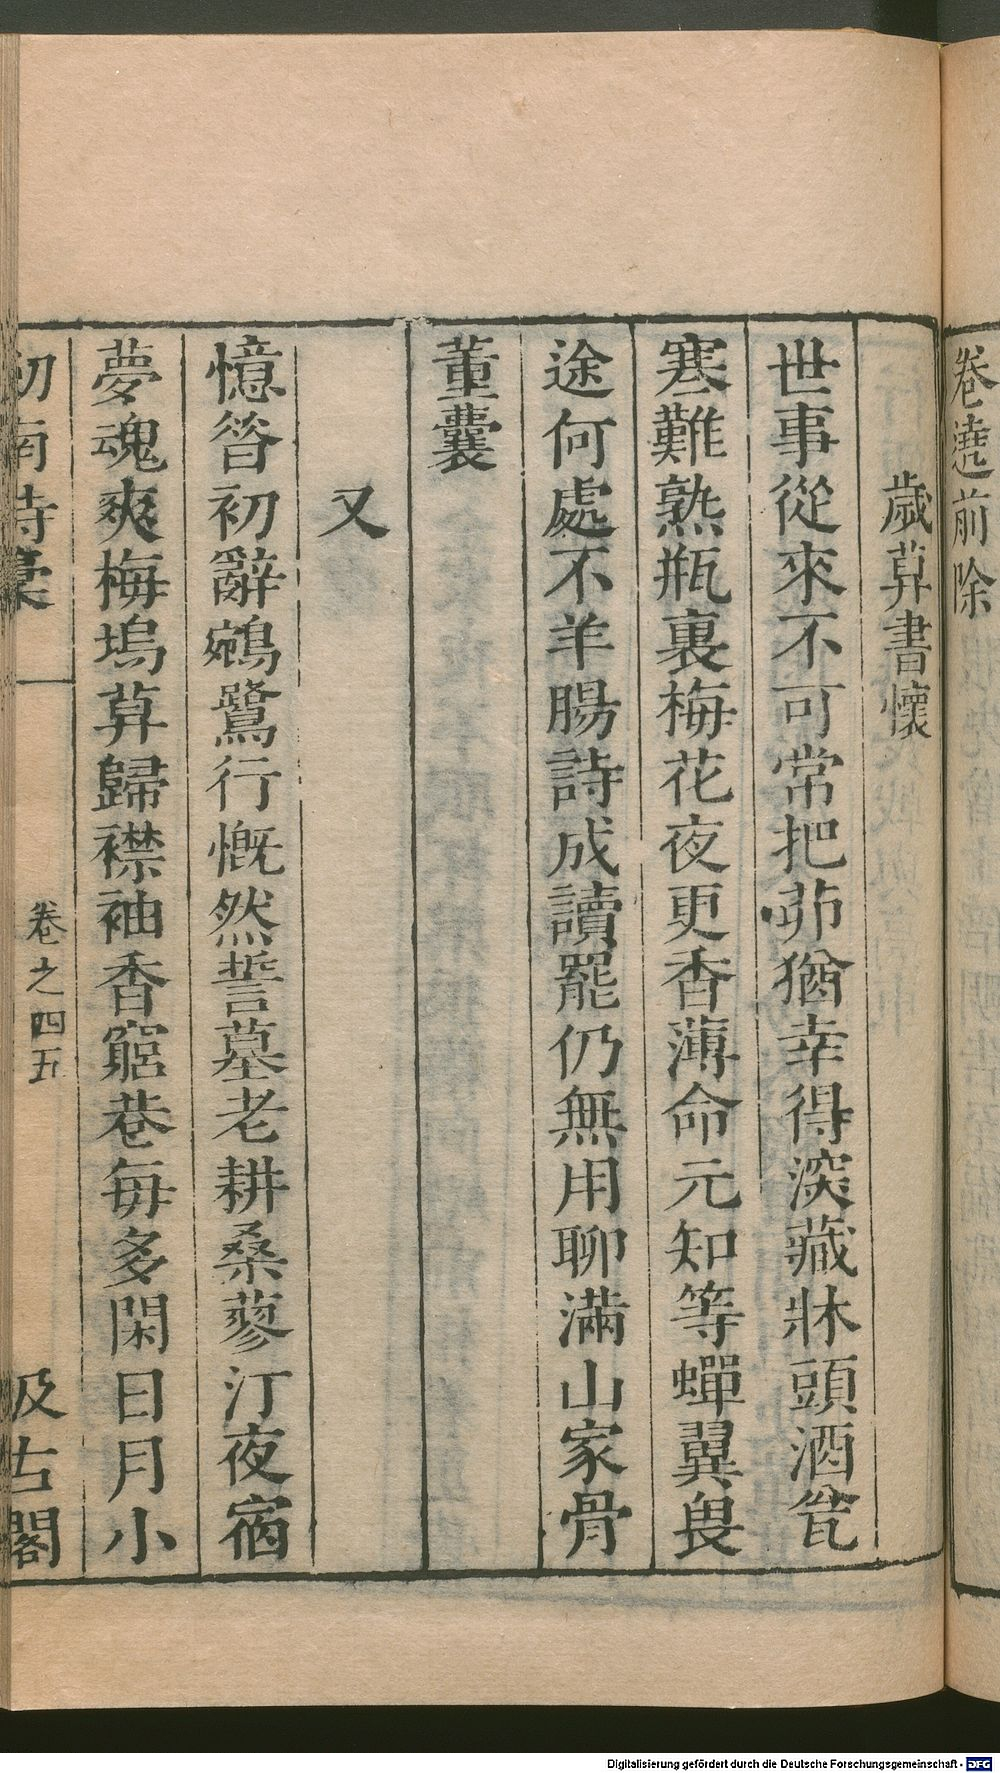 卷遶前除
歲莫書懷
世事從來不可常把茆猶幸得深藏牀頭酒瓮
寒難熟瓶裏梅花夜更香薄命元知等蟬翼畏
途何處不羊腸詩成讀罷仍無用聊滿山家骨
董囊
又
憶昝初辭鵷鷺行慨然誓墓老耕桑蓼汀夜宿
夢魂爽梅塢莫歸襟袖香窮巷每多閑日月小
劒南詩稾
卷之四五
汲古閣
Digitalisierung gefördert durch die Deutsche Forschungsgemeinschaft - DFG